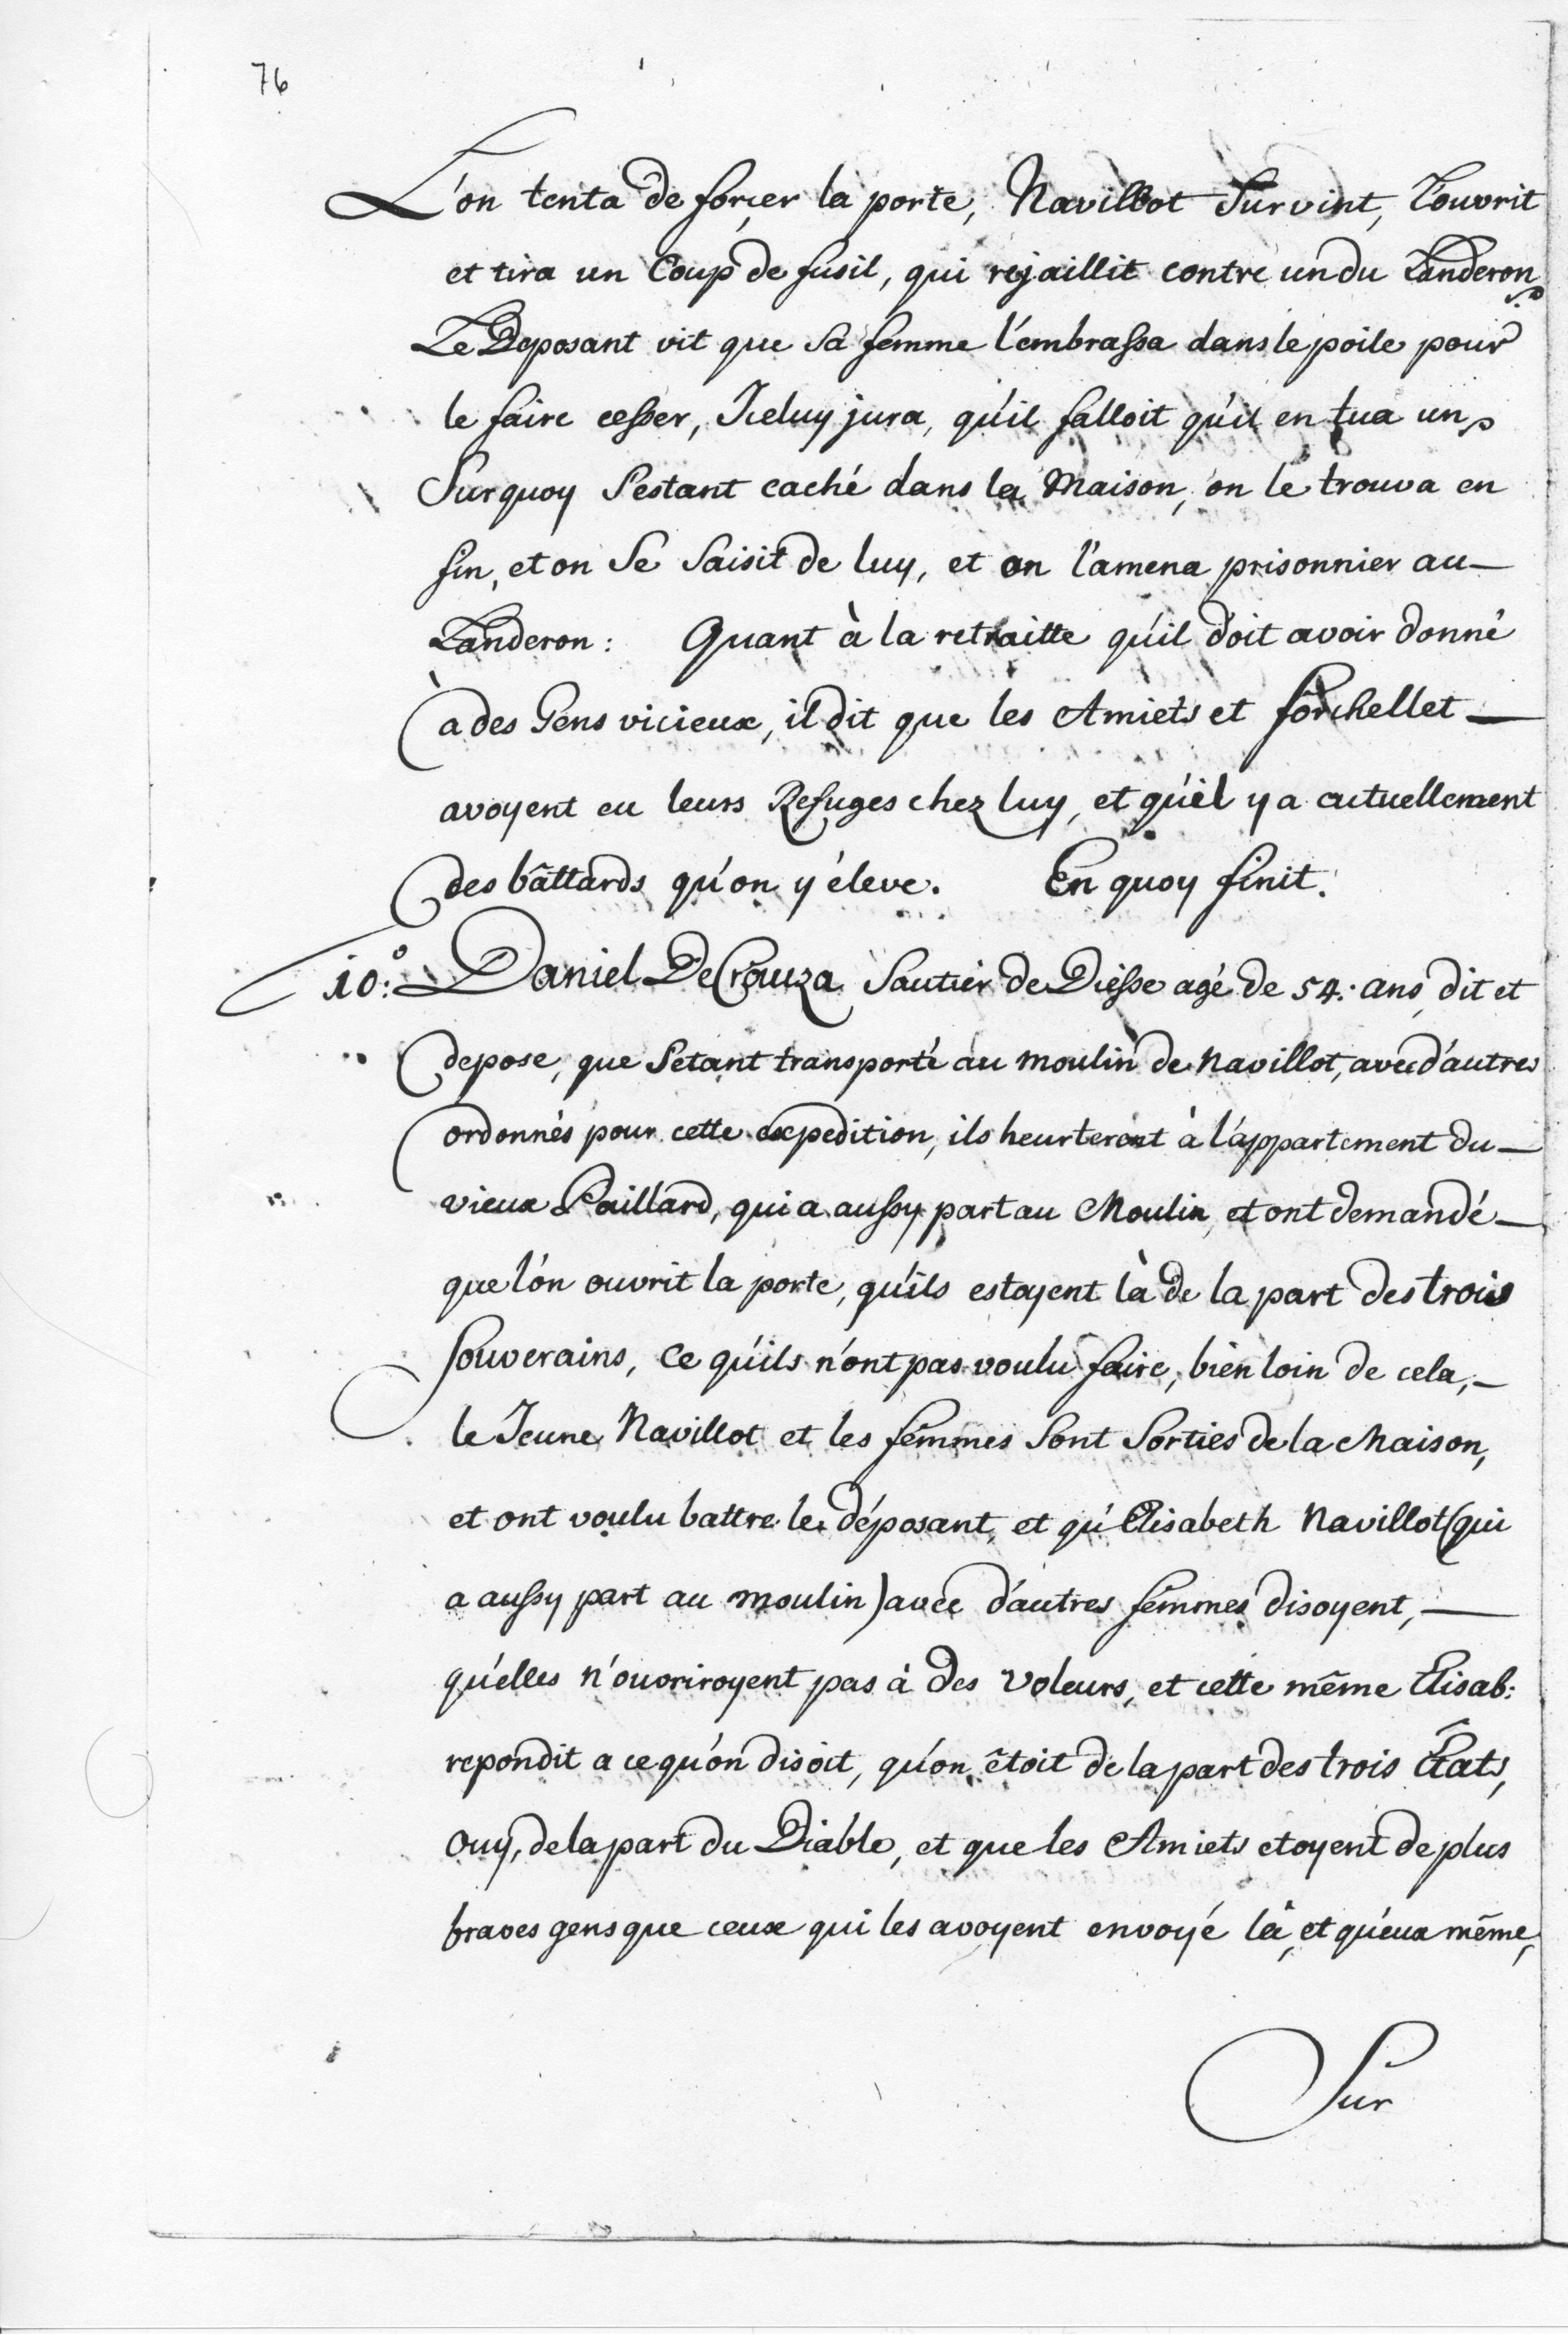 76
L'on tenta de forçer la porte, Navillot Survint, l'ouvrit
et tira un Coup de fusil, qui rejaillit contre un du Landeron
Le Deposant vit que Sa femme l'embrassa dans le poile pour
le faire cesser, Iceluy jura, qu'il falloit qu'il en tua un
Surquoy S'estant caché dans la Maison, on le trouva en
fin, et on Se Saisit de luy, et on l'amena prisonnier au
Landeron: Quant à la retraitte qu'il doit avoir donné
à des Gens vicieux, il dit que les Amiets et forchellet
avoyent eu leurs Refuges chez luy, et qu'il y a actuellement
des bâttards qu'on y éleve. En quoy finit.
10.° Daniel DeCrauza Sautier de Diesse agé de 54. ans, dit et
depose, que S'etant transporté au moulin de Navillot, avec d'autres
ordonnés pour cette expedition, ils heurterent à l'appartement du
vieux Paillard, qui a aussy part au Moulin, et ont demandé
que l'on ouvrit la porte, qu'ils estoyent là de la part des trois
Souverains, Ce qu'ils n'ont pas voulu faire, bien loin de cela,
le Jeune Navillot et les femmes Sont Sorties de la Maison,
et ont voulu battre le déposant, et qu'Elisabeth Navillot (qui
a aussy part au moulin) avec d'autres femmes disoyent,
qu'elles n'ouvriroyent pas à des voleurs, et cette même Elisab:
repondit a ce qu'on disoit, qu'on êtoit de la part des trois Êtats,
Ouy, de la part du Diable, et que les Amiets etoyent de plus
braves gens que ceux qui les avoyent envoyé là, et qu'eux même,
Sur